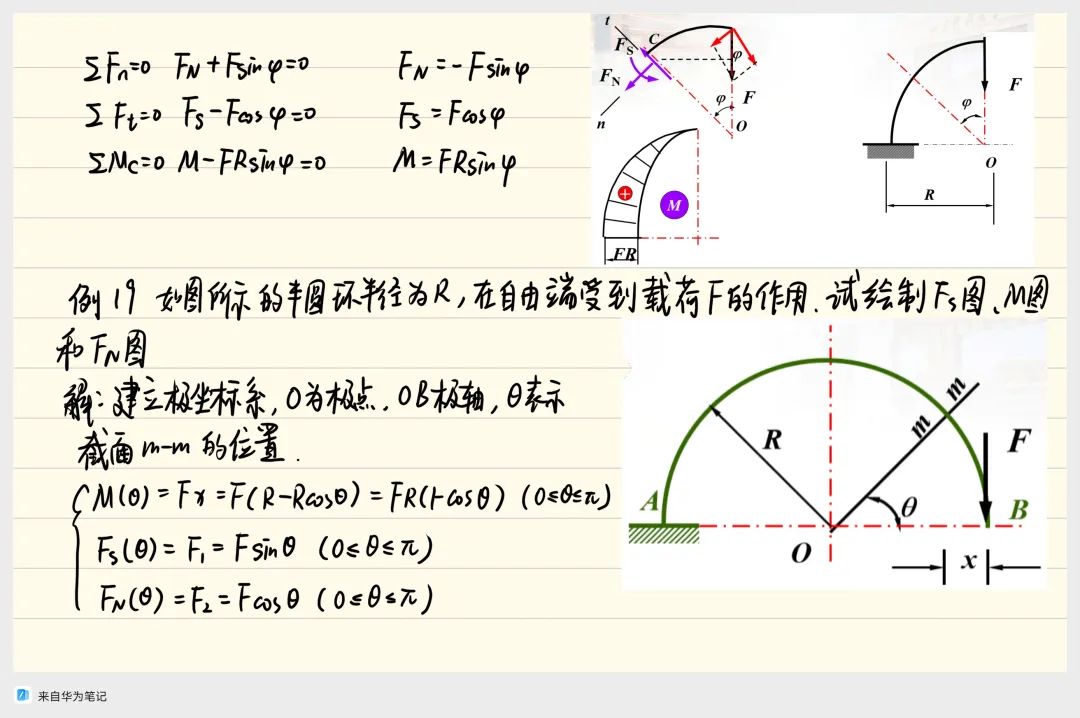 ΣFn=0 FN+Fsinφ=0 FN=-Fsinφ
ΣFt=0 Fs-Fcosφ=0 Fs=Fcosφ
ΣMc=0 M-FRsinφ=0 M=FRsinφ
t
FS
C
FN
φ
φ
F
n
O
+
M
FR
F
φ
O
R
例19 如图所示的半圆环半径为R,在自由端受到载荷F的作用.试绘制Fs图、M图
和FN图
解:建立极坐标系,O为极点,OB极轴,θ表示
截面m-m的位置.
M(θ)=Fx=F(R-Rcosθ)=FR(1-cosθ) (0≤θ≤π)
Fs(θ)=F1=Fsinθ (0≤θ≤π)
FN(θ)=F2=Fcosθ (0≤θ≤π)
m
m
R
F
A
θ
B
O
x
来自华为笔记